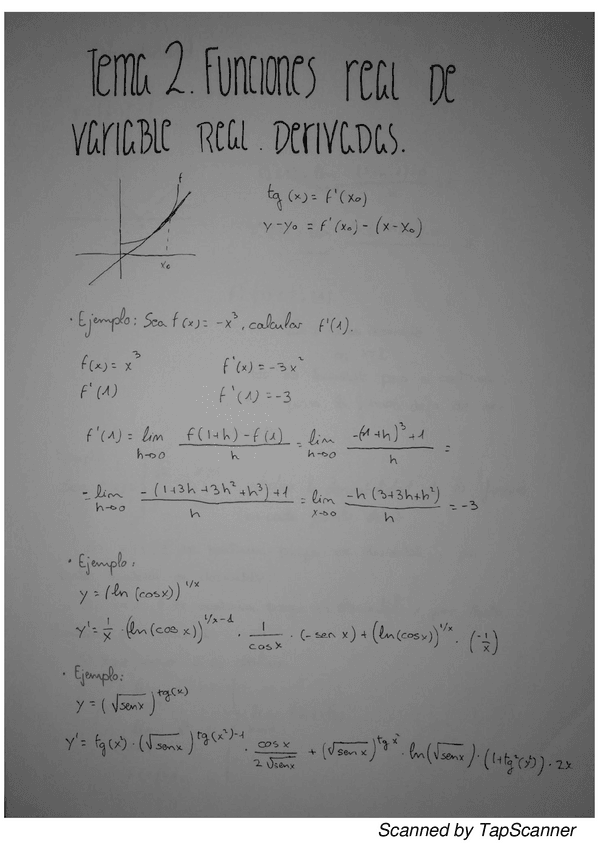 Tema 2. Funciones real de
variable real. Derivadas.
f
x₀
tg (x) = f'(x₀)
y-y₀ = f'(x₀) - (x-x₀)
· Ejemplo: Sea f(x) = -x³, calcular f'(1).
f(x) = x³ f'(x) = -3x²
f'(1) f'(1) = -3
f'(1) = lim h→0 (f(1+h) - f(1))/h = lim h→0 (-(1+h)³+1)/h =
= lim h→0 (-(1+3h+3h²+h³)+1)/h = lim x→0 (-h(3+3h+h²))/h = -3
· Ejemplo:
y = (ln (cosx))^(1/x)
y' = 1/x · (ln(cos x))^(1/x-1) · 1/cosx · (-sen x) + (ln(cosx))^(1/x) · (-1/x)
· Ejemplo:
y = (√senx)^(tg(x))
y' = tg(x²) · (√senx)^(tg(x²)-1) · cosx/(2√senx) + (√senx)^(tg x²) · ln(√senx) · (1+tg²(x²)) · 2x
Scanned by TapScanner